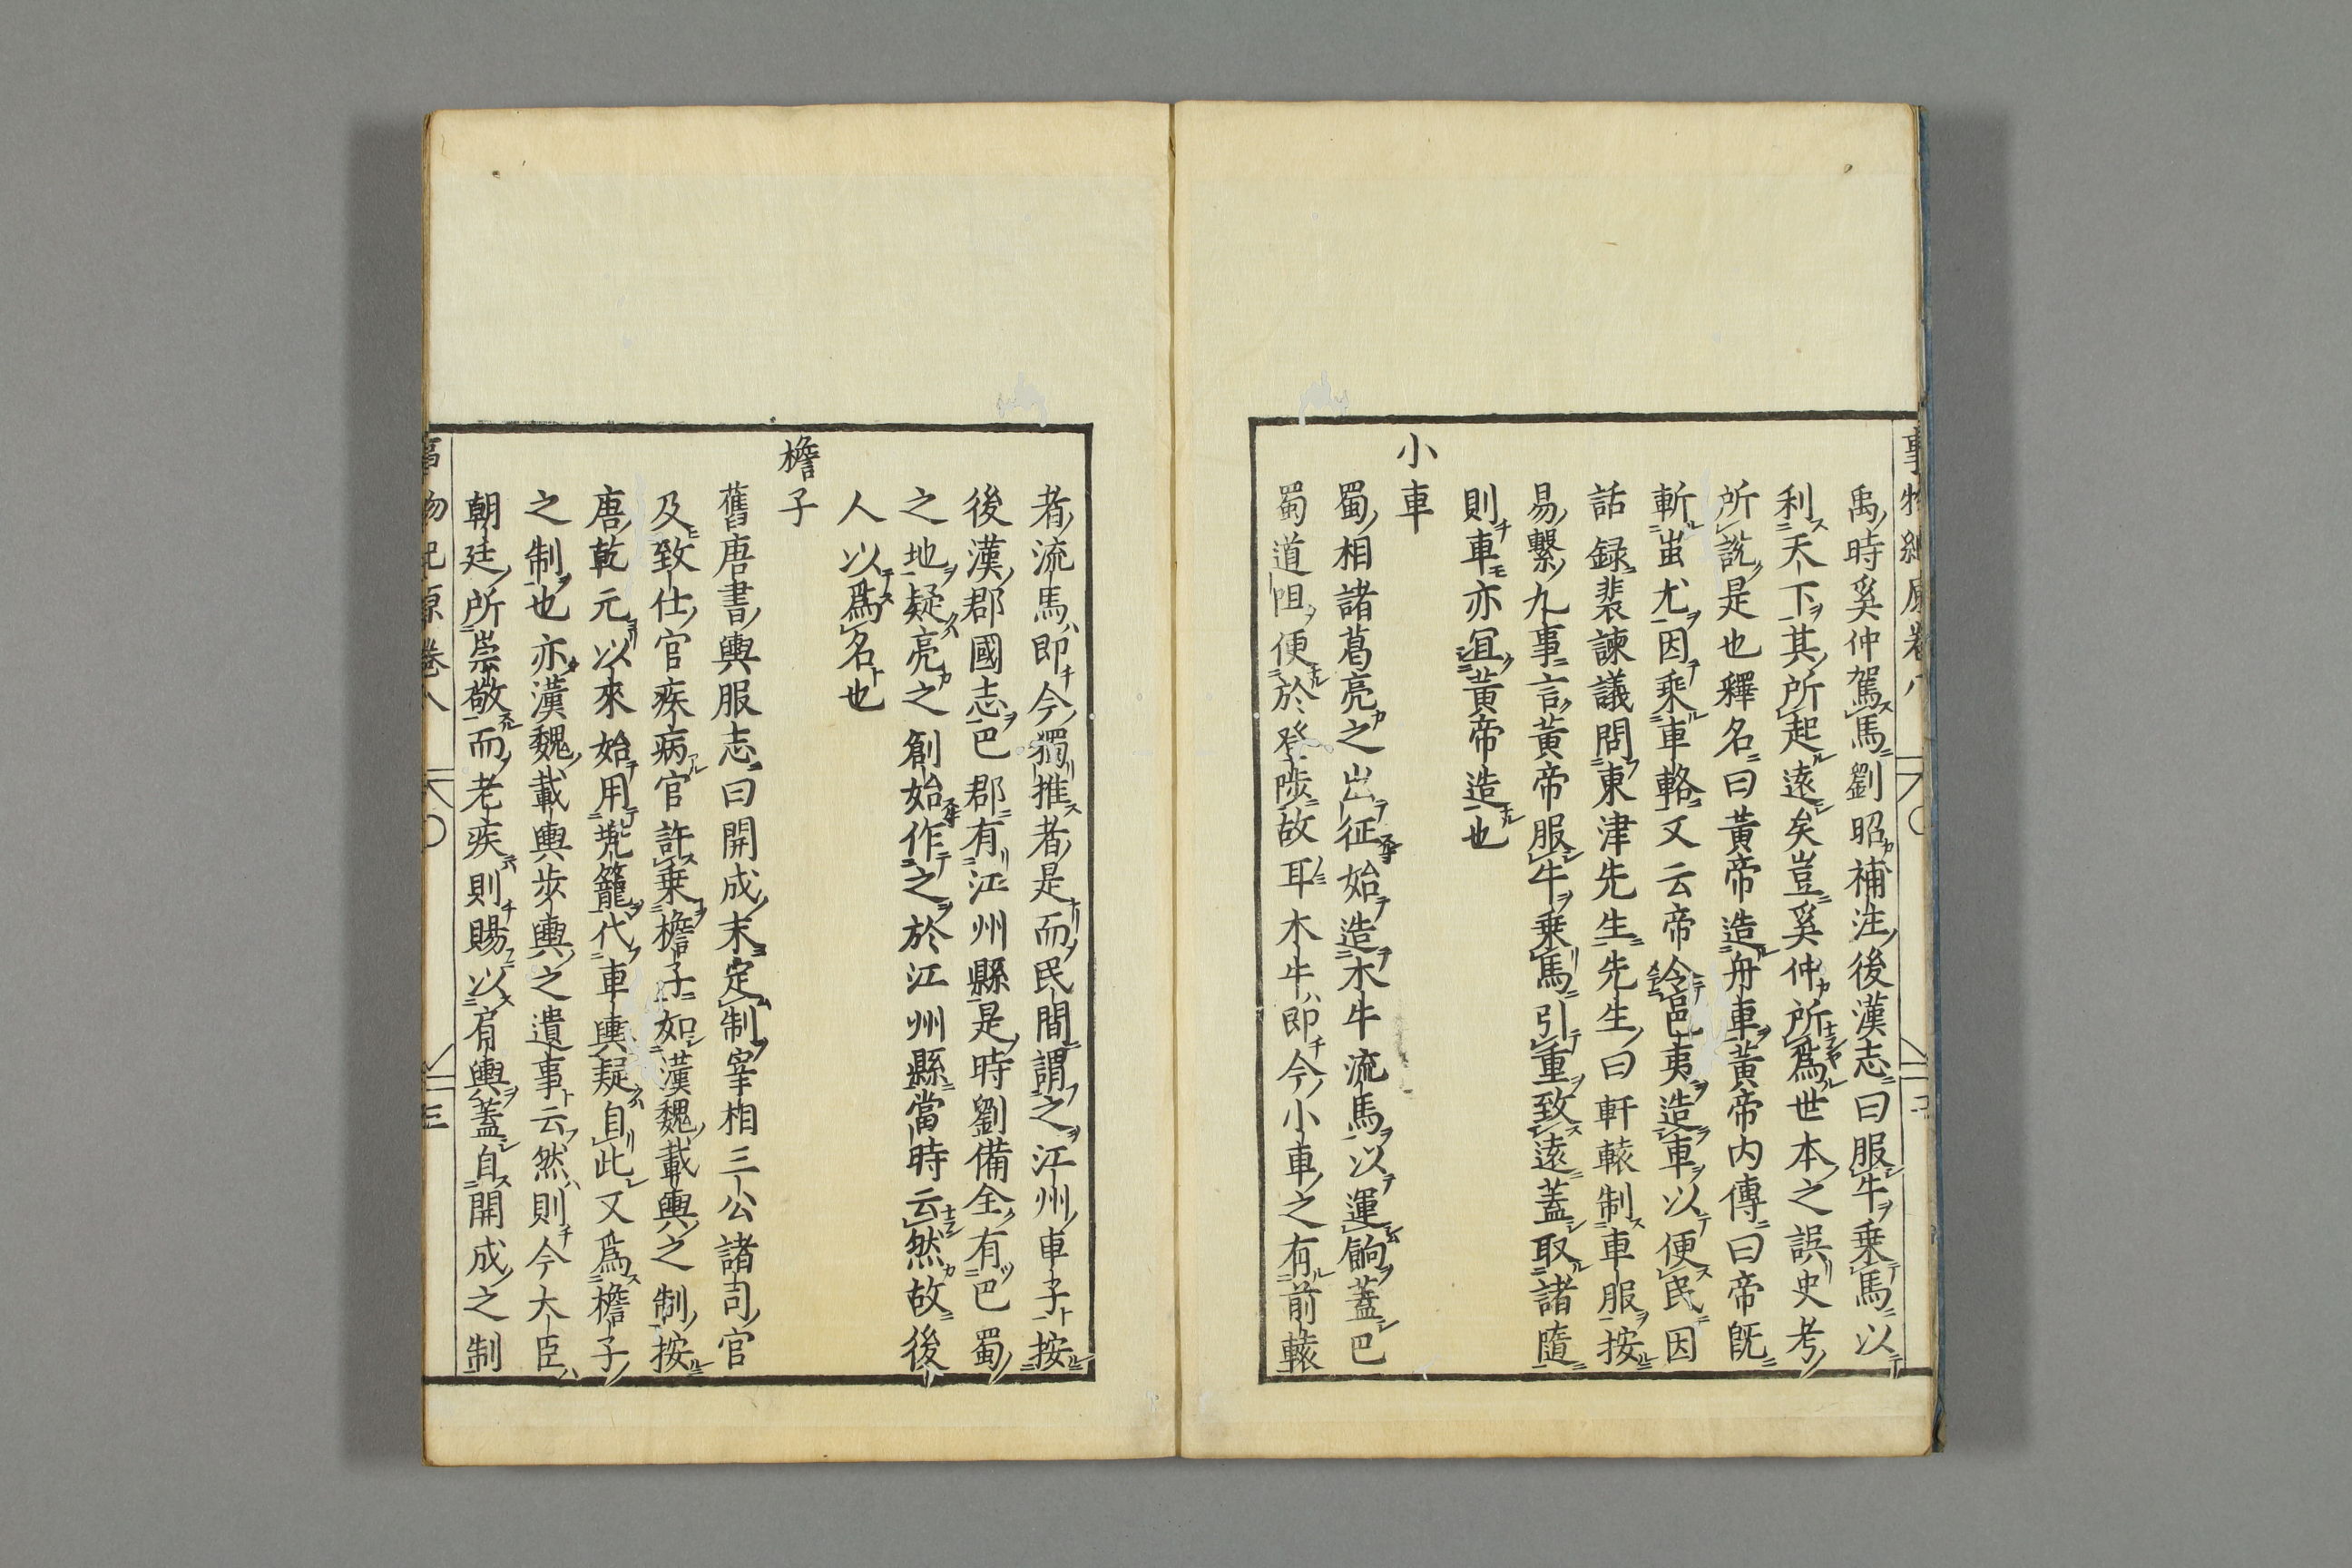 事物紀原卷八
禹時奚仲駕馬劉昭補注後漢志曰服牛乘馬以
利天下其所起遠矣豈奚仲所爲世本之誤史考
所說是也釋名曰黃帝造舟車黃帝内傳曰帝旣
斬蚩尤因乘車輅又云帝令邑夷造車以便民因
話録裴諫議問東津先生先生曰軒轅制車服按
易繫九事言黃帝服牛乘馬引重致遠蓋取諸隨
則車亦冝黃帝造也
小車
蜀相諸葛亮之出征始造木牛流馬以運餉蓋巴
蜀道阻便於登陟故耳木牛即今小車之有前轅
者流馬即今獨推者是而民間謂之江州車子按
後漢郡國志巴郡有江州縣是時劉備全有巴蜀
之地疑亮之創始作之於江州縣當時云然故後
人以爲名也
檐子
舊唐書輿服志曰開成末定制宰相三公諸司官
及致仕官疾病官許乘檐子如漢魏載輿之制按
唐乾元以來始用兠籠代車輿疑自此又爲檐子
之制也亦漢魏載輿步輿之遺事云然則今大臣
朝廷所崇敬而老疾則賜以肩輿蓋自開成之制
事物紀原卷八
三